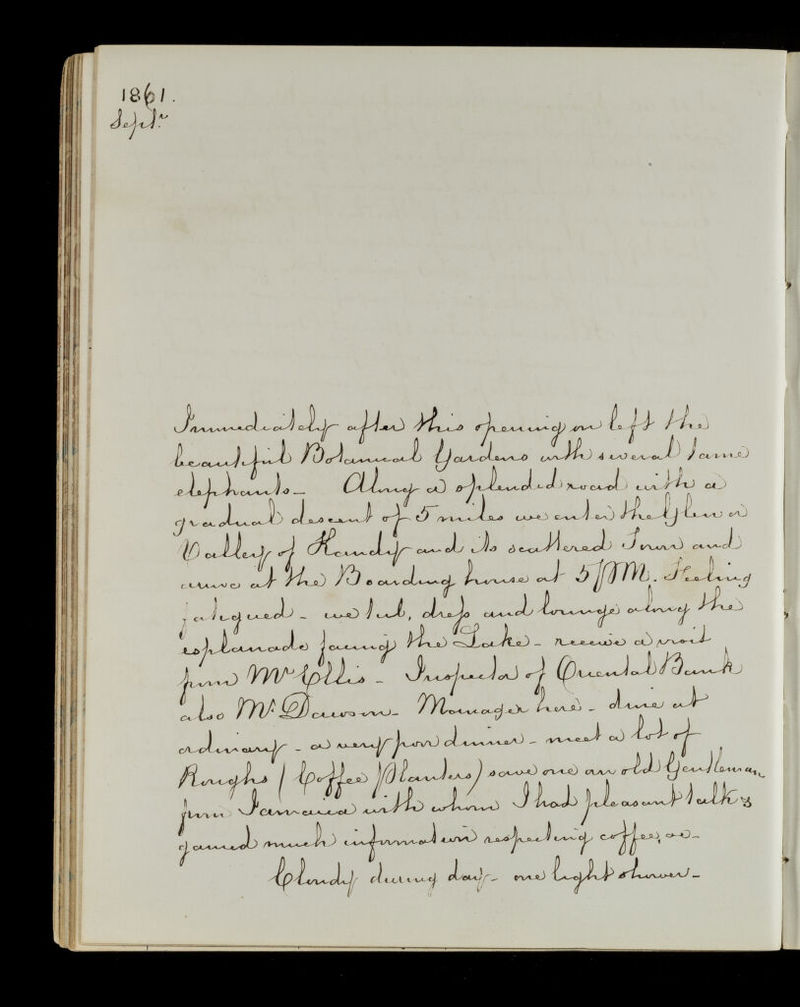 1861.
Septr
Immediately after this opening on left the
beautiful Botanical Gardens with several tame
elephants - Along a splendid road with a
gradual descent of 5 miles we enter the Glen or
Valley of Kandy and its scattered Town and
arrive at the Boarding house at 5 PM. Feeling
fatigued - we tub, dress and lounge along the
esplanade facing the Lake - receive a visit
from Mr Ellis - Inspector of Oriental Bank
also Mr Dawson - Manager here - dine at
ordinary - a very poor dinner - meet a lot of
Roughs (Coffee Planters) save one an old Gentleman
from Jamaica with whom I had pleasant talk &
gained much information respecting coffee,
Cloudy during day - one light shower -